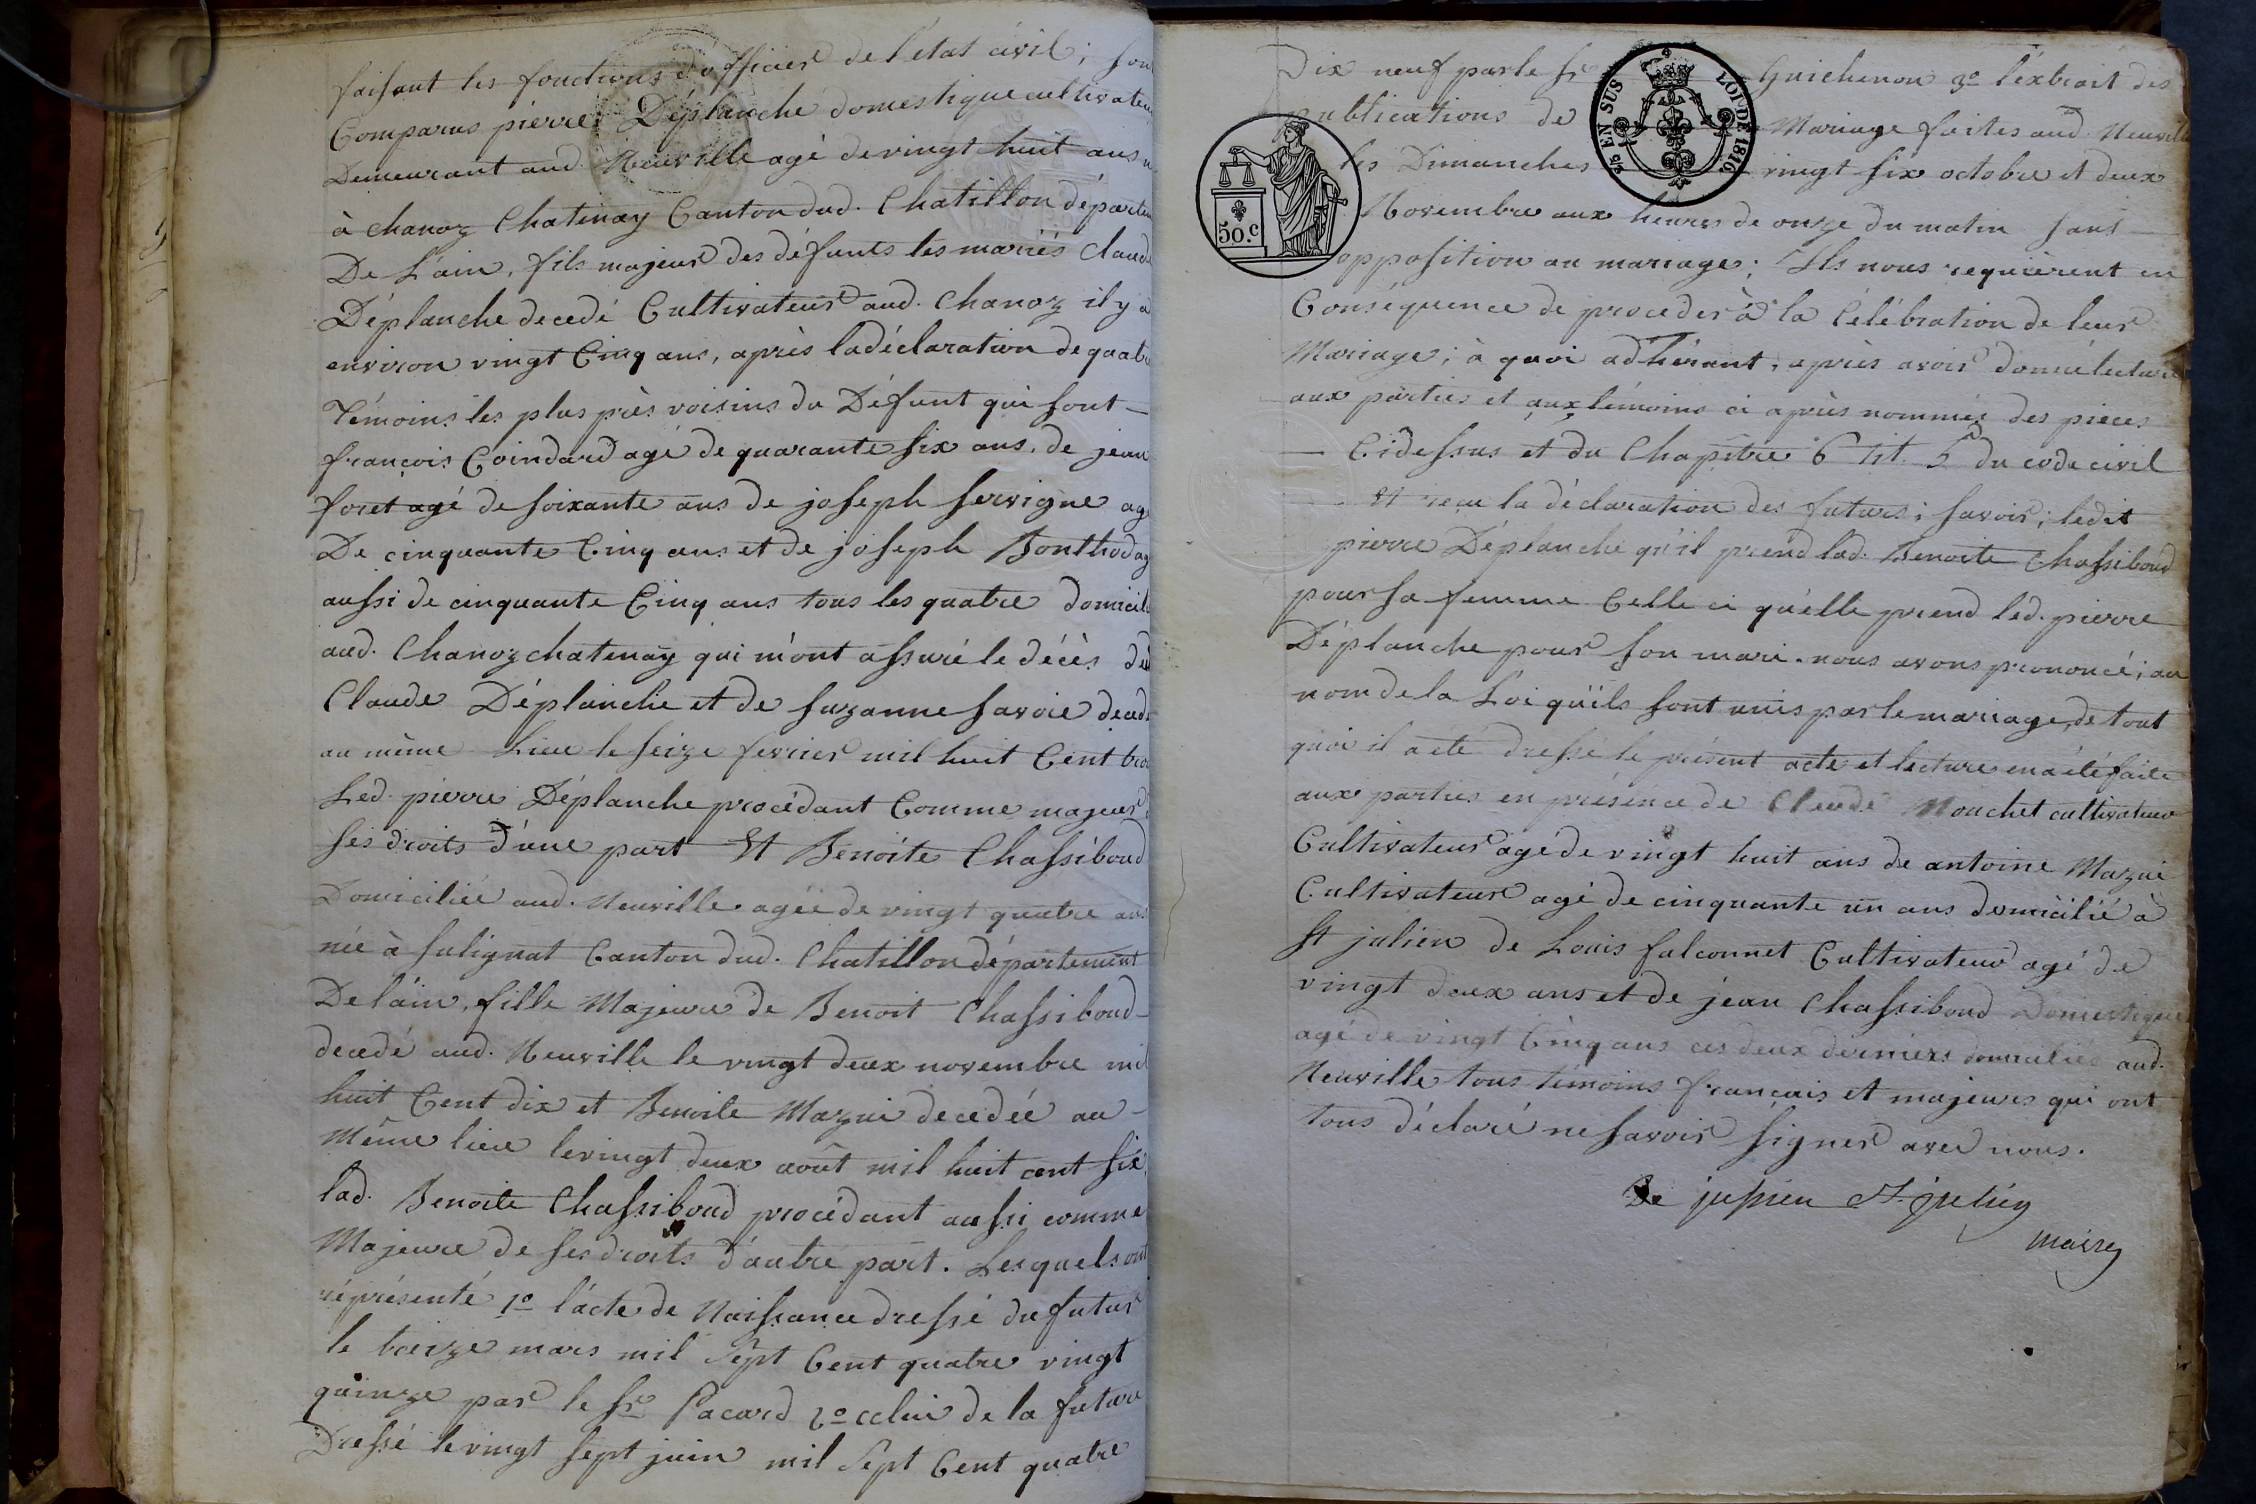 faisant les fonctions d'officier de l'état civil; son
Comparus pierre Déplanche domestique cultivateu
Demeurant aud. Neuville agé de vingt huit ans n
à chanoz Chatenay Canton dud. Chatillon départem
De L'ain, fils majeur des défunts les mariés Claud
Déplanche decedé Cultivateur aud. Chanoz il y a
environ vingt Cinq ans, après la déclaration de quatr
Témoins les plus près voisins du Défunt qui sont —
françois Coindard agé de quarante six ans, de jean
foret agé de soixante ans de joseph servigne ag
De cinquante Cinq ans et de joseph Bonthod ag
aussi de cinquante Cinq ans tous les quatre domicil
aud. Chanoz chatenay qui m'ont assuré le décès du
Claude Déplanche et de suzanne savoie deced
au même Lieu le seize fevrier mil huit Cent
Led. pierre Déplanche procédant Comme majeur
ses droits d'une part Et Benoite Chassiboud
Domiciliée aud. Neuville agée de vingt quatre ans
née à sulignat Canton dud. Chatillon département
De l'ain, fille Majeure de Benoit Chassiboud —
decedé aud. Neuville le vingt deux novembre mil
huit Cent dix et Benoite Mazui decedée au —
Même lieu le vingt deux août mil huit cent six
lad. Benoite Chassiboud procédant aussi comme
Majeure de ses droits d'autre part. Lesquels ont
réprésenté 1o l'acte de Naissance dressé du futur
le treize mars mil sept Cent quatre vingt
quinze par le Sr Pacard 2o celui de la future
Dressé le vingt sept juin mil sept Cent quatre
Dix neuf par le Sr Guichenon 3o l'extrait des
publications de Mariage faites aud. Neuvill
les Dimanches vingt six octobre et deux
Novembre aux heures de onze du matin sans —
opposition au mariage; Ils nous requièrent en
Conséquence de proceder à la Célébration de leur
Mariage; à quoi adhérant, après avoir donné lecture
aux parties et aux témoins ci après nommés des pieces
— Cidessus et du Chapitre 6 tit. 5 du code civil
Et reçu la déclaration des futurs; savoir; ledit
pierre Déplanche qu'il prend lad. Benoite Chassiboud
pour sa femme Celle ci qu'elle prend led. pierre
Déplanche pour son mari. nous avons prononcé; au
nom de la Loi qu'ils sont unis par le mariage, de tout
quoi il a été dressé le présent acte et lecture en a été faite
aux parties en présence de Claude Mouchet cultivateur
Cultivateur agé de vingt huit ans de antoine Mazui
Cultivateur agé de cinquante un ans domicilié à
St julien de Louis falconnet Cultivateur agé de
vingt deux ans et de jean Chassiboud Domestique
agé de vingt Cinq ans ces deux derniers domiciliés aud.
Neuville tous témoins français et majeurs qui ont
tous déclaré ne savoir signer avec nous.
De jussieu St. julien
maire
EN SUS
LOI DE 1816
50.c